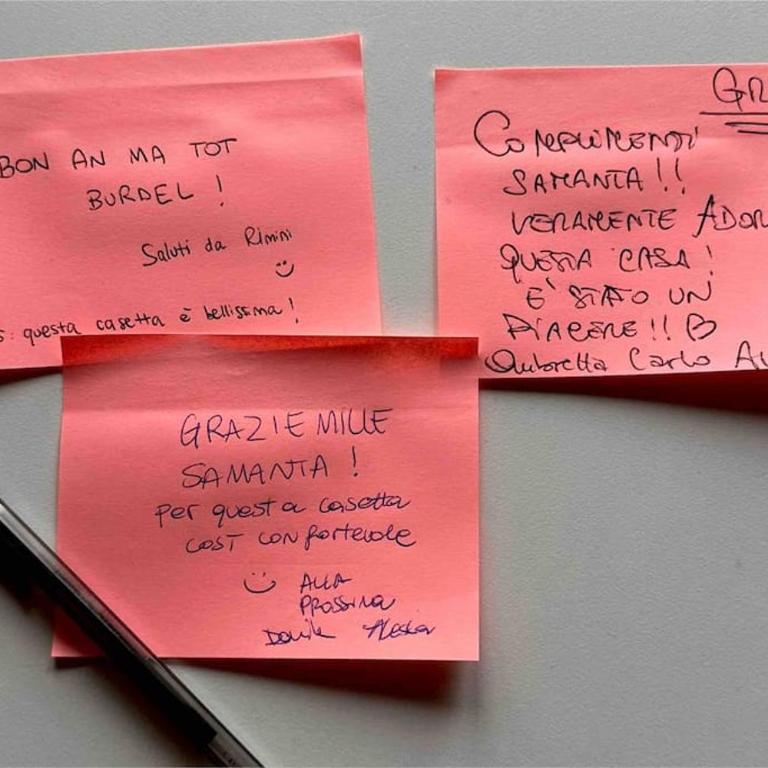 BON AN MA TOT
BURDEL !
Saluti da Rimini
: questa casetta è bellissima !
GR
COMPLIMENTI
SAMANTA !!
VERAMENTE ADOR
QUESTA CASA !
E' STATO UN
PIACERE !!
Carlo
GRAZIE MILLE
SAMANTA !
per questa casetta
COSÌ confortevole
ALLA
PROSSIMA